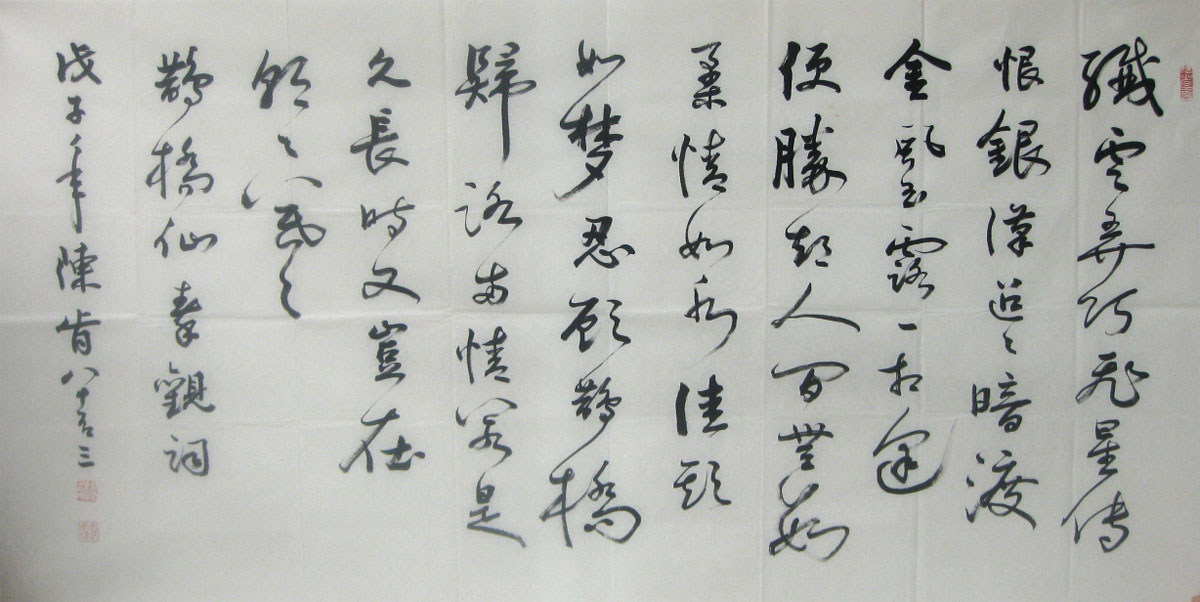 纖雲弄巧飛星傳
恨銀漢迢々暗渡
金風玉露一相逢
便勝却人間無數
柔情如水佳期
如梦忍顧鵲橋
歸路两情若是
久長時又豈在
朝々暮々
鵲橋仙秦觀詞
戊子年陳肯八十有三